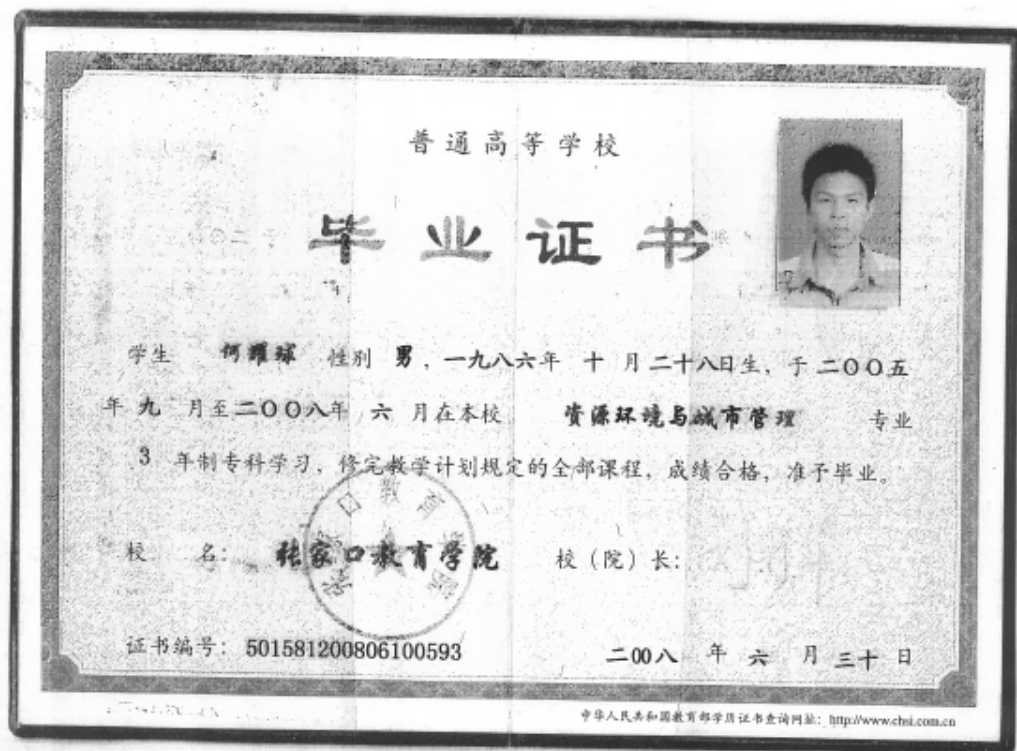 普通高等学校
毕业证书
学生 何耀球 性别 男，一九八六年 十 月 二十八日生，于 二〇〇五
年 九 月至 二〇〇八年 六 月在本校 资源环境与城市管理 专业
3 年制专科学习，修完教学计划规定的全部课程，成绩合格，准予毕业。
校 名：张家口教育学院 校（院）长：
张家口教育学院
证书编号：501581200806100593 二00八 年 六 月 三十 日
中华人民共和国教育部学历证书查询网址：http://www.chsi.com.cn